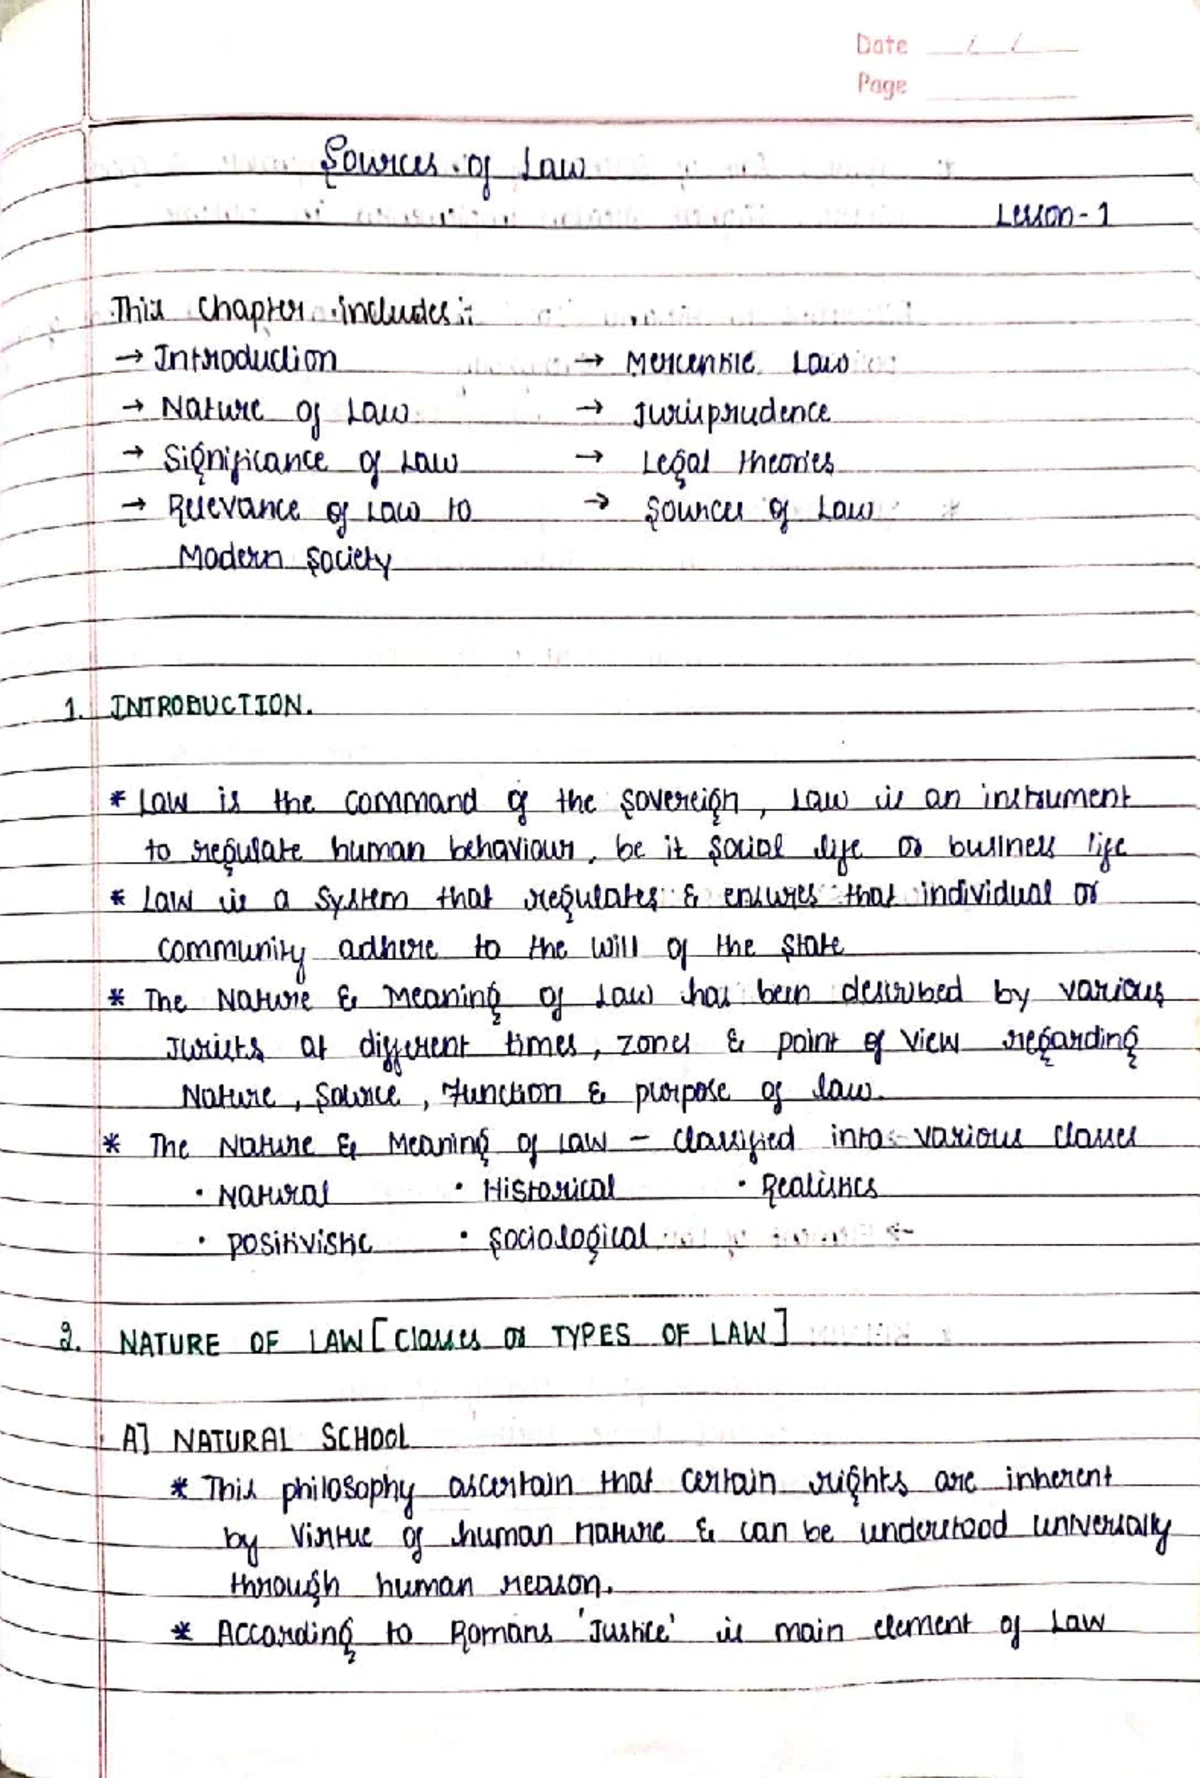 Date
Page
Sources of Law
Lesson - 1
This Chapter includes :
→ Introduction → Mercantile Law
→ Nature of Law → Jurisprudence
→ Significance of Law → Legal theories
→ Relevance of Law to → Sources of Law
Modern Society
1. INTRODUCTION.
* Law is the command of the sovereign, Law is an instrument
to regulate human behaviour, be it social life or business life
* Law is a System that regulates & ensures that individual or
community adhere to the will of the State
* The Nature & Meaning of Law has been described by various
Jurists at different times, zones & point of view regarding
Nature, Source, Function & purpose of law.
* The Nature & Meaning of Law - classified into various classes
• Natural • Historical • Realistics
• Positivistic • Sociological
2. NATURE OF LAW [Classes or TYPES OF LAW]
A] NATURAL SCHOOL
* This philosophy ascertain that certain rights are inherent
by virtue of human nature & can be understood universally
through human reason.
* According to Romans 'Justice' is main element of Law